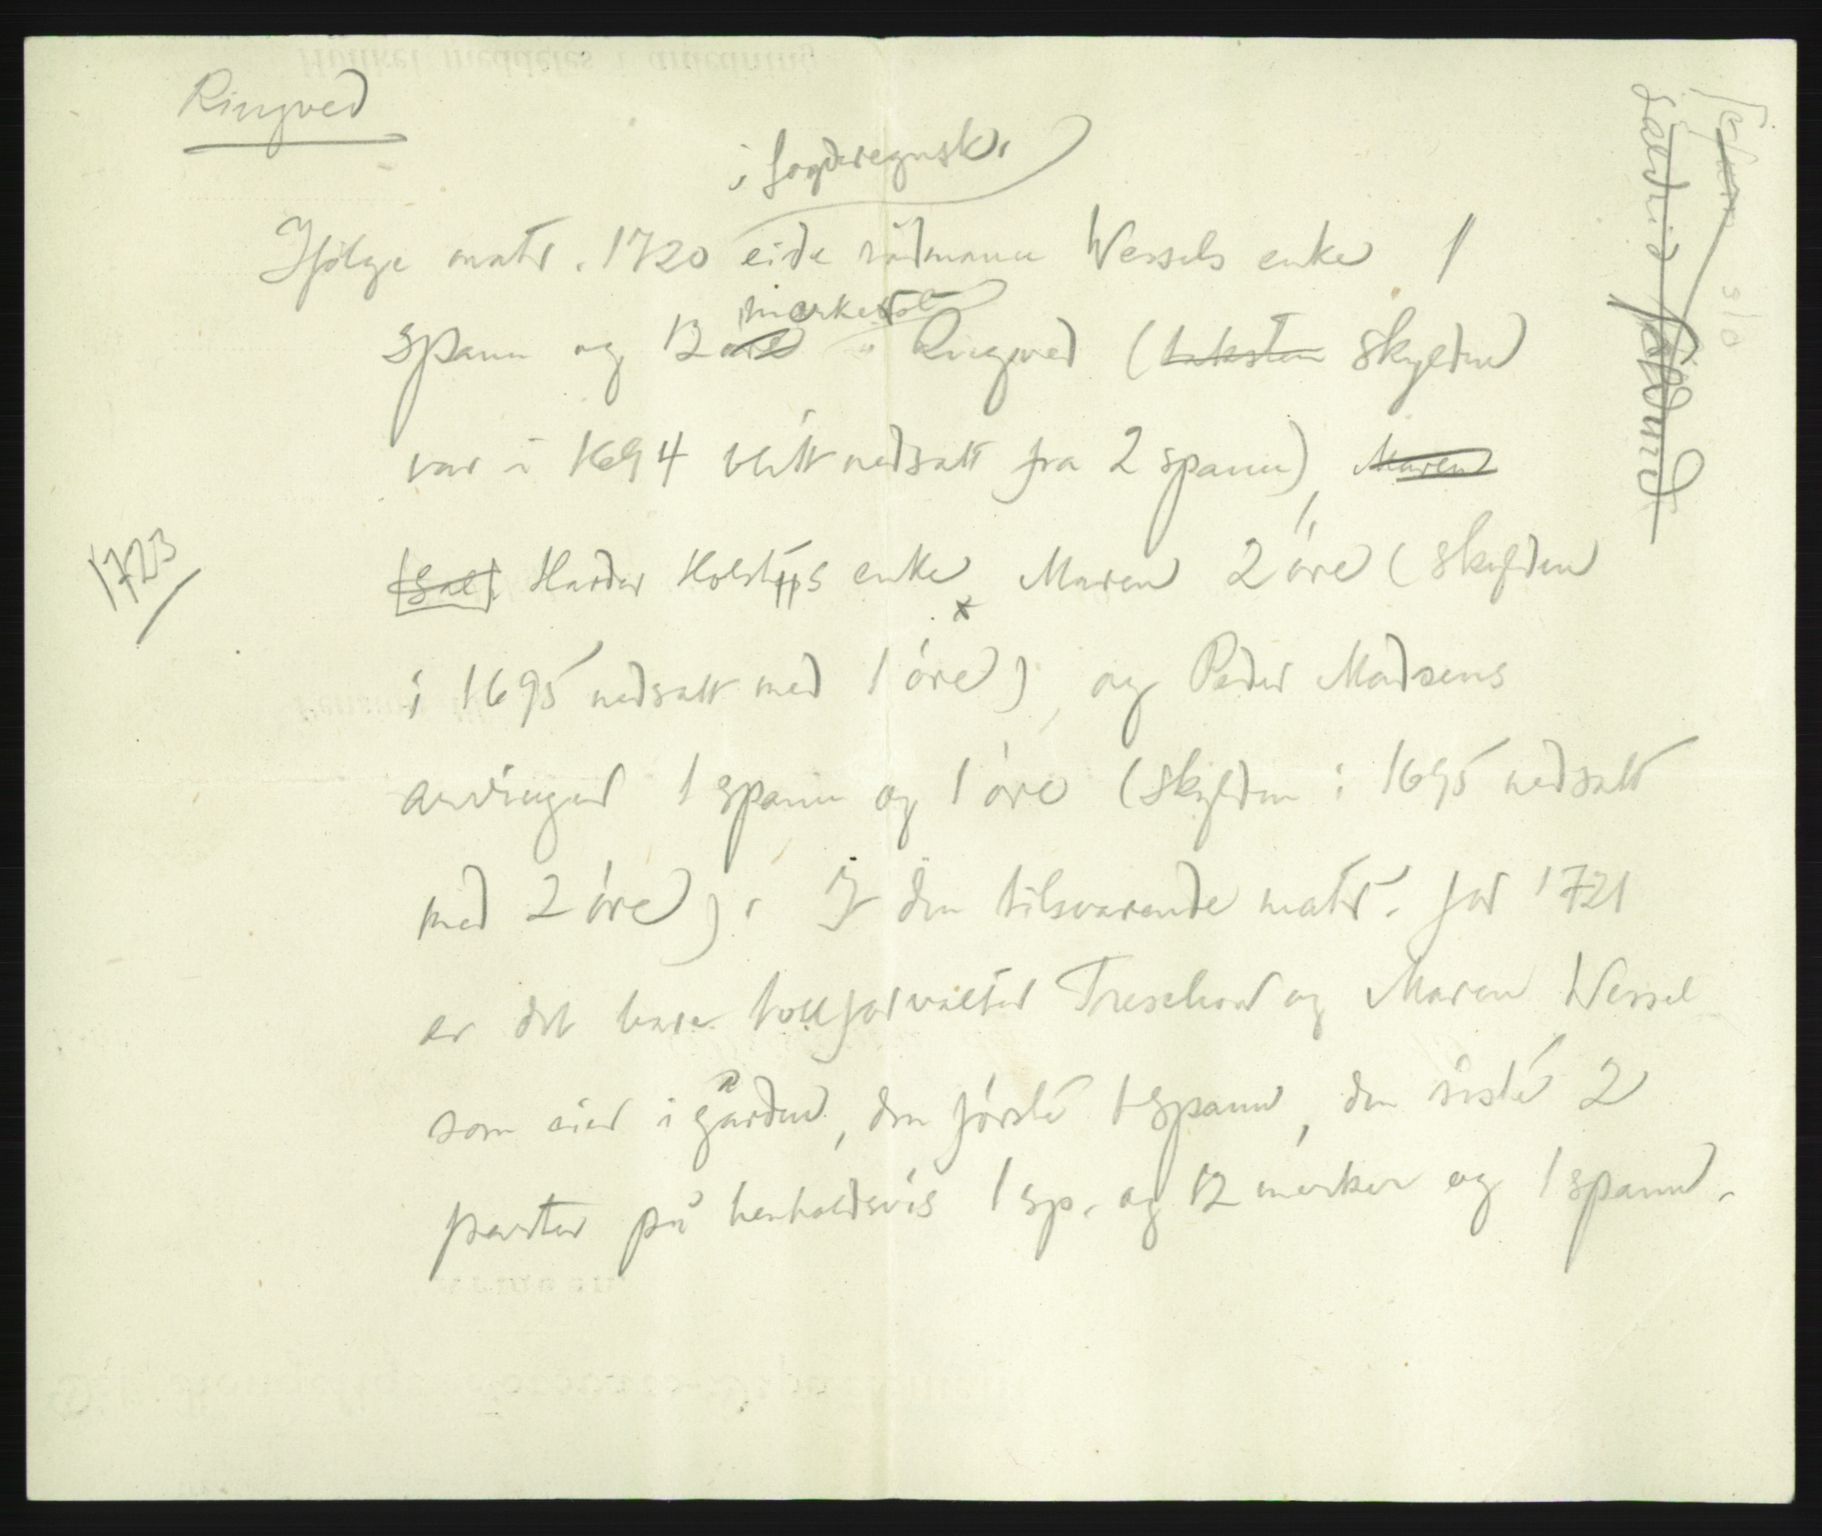 Ringved
i fogderegnsk.
Ifølge matr. 1720 eide rådmann Wessels enke 1
merker
spann og 12 øre i Ringved (taksten skylden
var i 1694 blitt nedsatt fra 2 spann), Maren
[Sal.] Harder Holsts enke x Maren 2 öre (skylden
1723
i 1695 nedsatt med 1 öre), og Peder Madsens
arvinger 1 spann og 1 öre (skylden i 1695 nedsatt
med 2 öre). I den tilsvarende matr. for 1721
er det bare tollforvalter Treschow og Maren Wessel
som eier i gården, den første 1 spann, den siste 2
parter på henholdsvis 1 sp. og 12 merker og 1 spann.